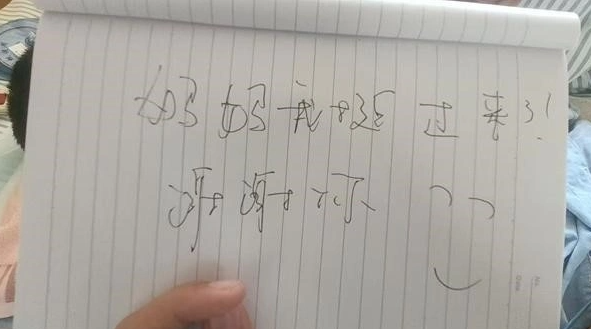 妈妈我挺过来了!
谢谢你